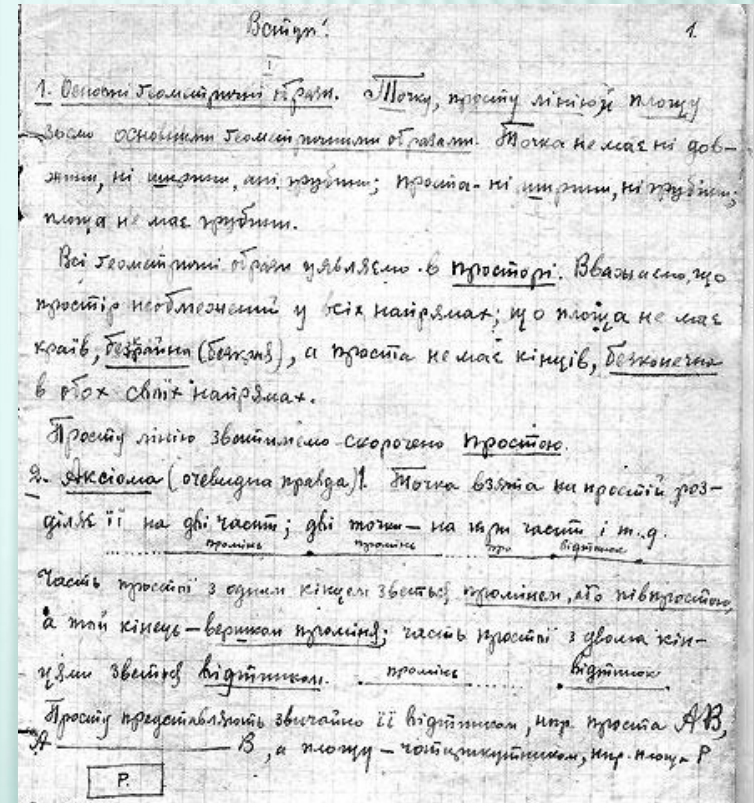 Вступ. 1.
1. Основні геометричні образи. Точку, просту лінію й площу
звемо основними геометричними образами. Точка не має ні дов-
жини, ні ширини, ані грубини; проста - ні ширини, ні грубини;
площа не має грубини.
Всі геометричні образи уявляємо в просторі. Вважаємо, що
простір необмежений у всіх напрямах; що площа не має
країв, безкрайня (безкрая), а проста не має кінців, безконечна
в обох своїх напрямах.
Просту лінію зватимемо скорочено простою.
2. Аксіома (очевидна правда) 1. Точка взята на простій роз-
діляє її на дві часті; дві точки – на три часті і т. д.
промінь промінь про відтинок
Часть простої з одним кінцем зветься промінем, або півпростою,
а той кінець – верхом проміня; часть простої з двома кін-
цями зветься відтинком. промінь відтинок
Просту представляють звичайно її відтинком, нпр. проста AB,
A B, а площу – чотирикутником, нпр. площа P
P.